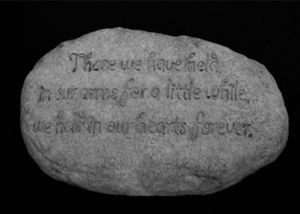 Those we have held
in our arms for a little while,
we hold in our hearts forever.